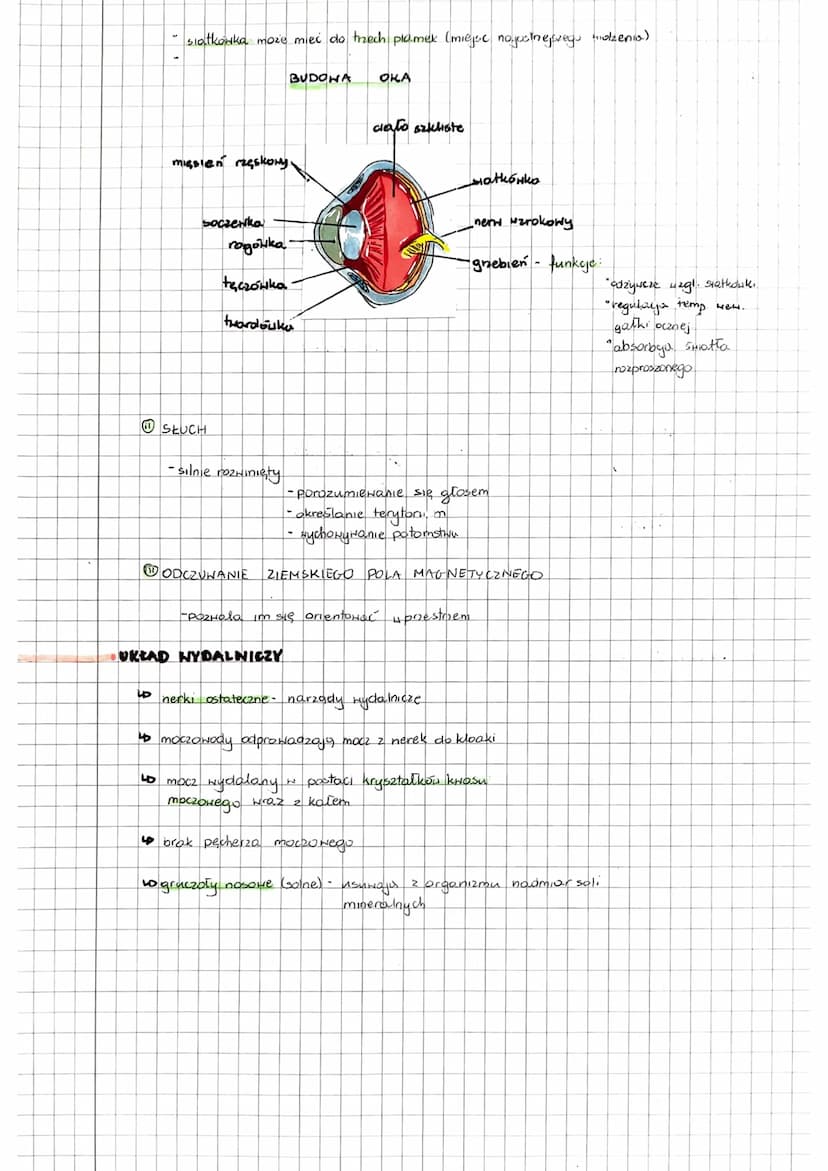 - siatkówka może mieć do trzech plamek (miejsc najostrzejszego widzenia)
-
BUDOWA OKA
ciało szkliste
mięsień rzęskowy
siatkówka
soczewka
nerw wzrokowy
rogówka
grzebień - funkcje:
tęczówka
twardówka
*odżywcze wzgl. siatkówki
*regulacja temp wew.
gałki ocznej
*absorbcja światła
rozproszonego
II SŁUCH
- silnie rozwinięty
- porozumiewanie się głosem
- określanie terytorium
- wychowywanie potomstwa
III ODCZUWANIE ZIEMSKIEGO POLA MAGNETYCZNEGO
- pozwala im się orientować w przestrzeni
• UKŁAD WYDALNICZY
↳ nerki ostateczne - narządy wydalnicze
↳ moczowody odprowadzają mocz z nerek do kloaki
↳ mocz wydalany w postaci kryształków kwasu
moczowego wraz z kałem
↳ brak pęcherza moczowego
↳ gruczoły nosowe (solne) - usuwają z organizmu nadmiar soli
mineralnych